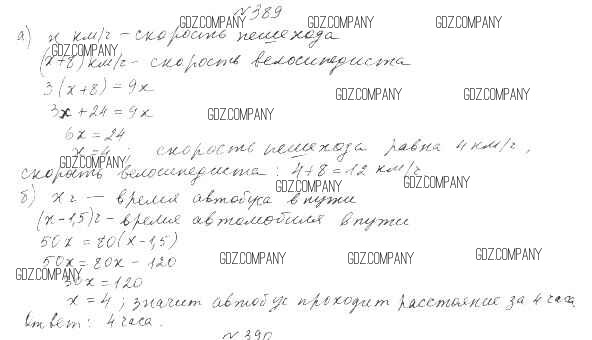 №389
а) х км/ч - скорость пешехода
(х+8) км/ч - скорость велосипедиста
3(х+8) = 9х
3х + 24 = 9х
6х = 24
х = 4; скорость пешехода равна 4 км/ч,
скорость велосипедиста: 4+8=12 км/ч
б) х ч — время автобуса в пути
(х-1,5)ч - время автомобиля в пути
50х = 80(х-1,5)
50х = 80х - 120
30х = 120
х = 4; значит автобус проходит расстояние за 4 часа.
Ответ: 4 часа.
№390
GDZ.COMPANY
GDZ.COMPANY
GDZ.COMPANY
GDZ.COMPANY
GDZ.COMPANY
GDZ.COMPANY
GDZ.COMPANY
GDZ.COMPANY
GDZ.COMPANY
GDZ.COMPANY
GDZ.COMPANY
GDZ.COMPANY
GDZ.COMPANY
GDZ.COMPANY